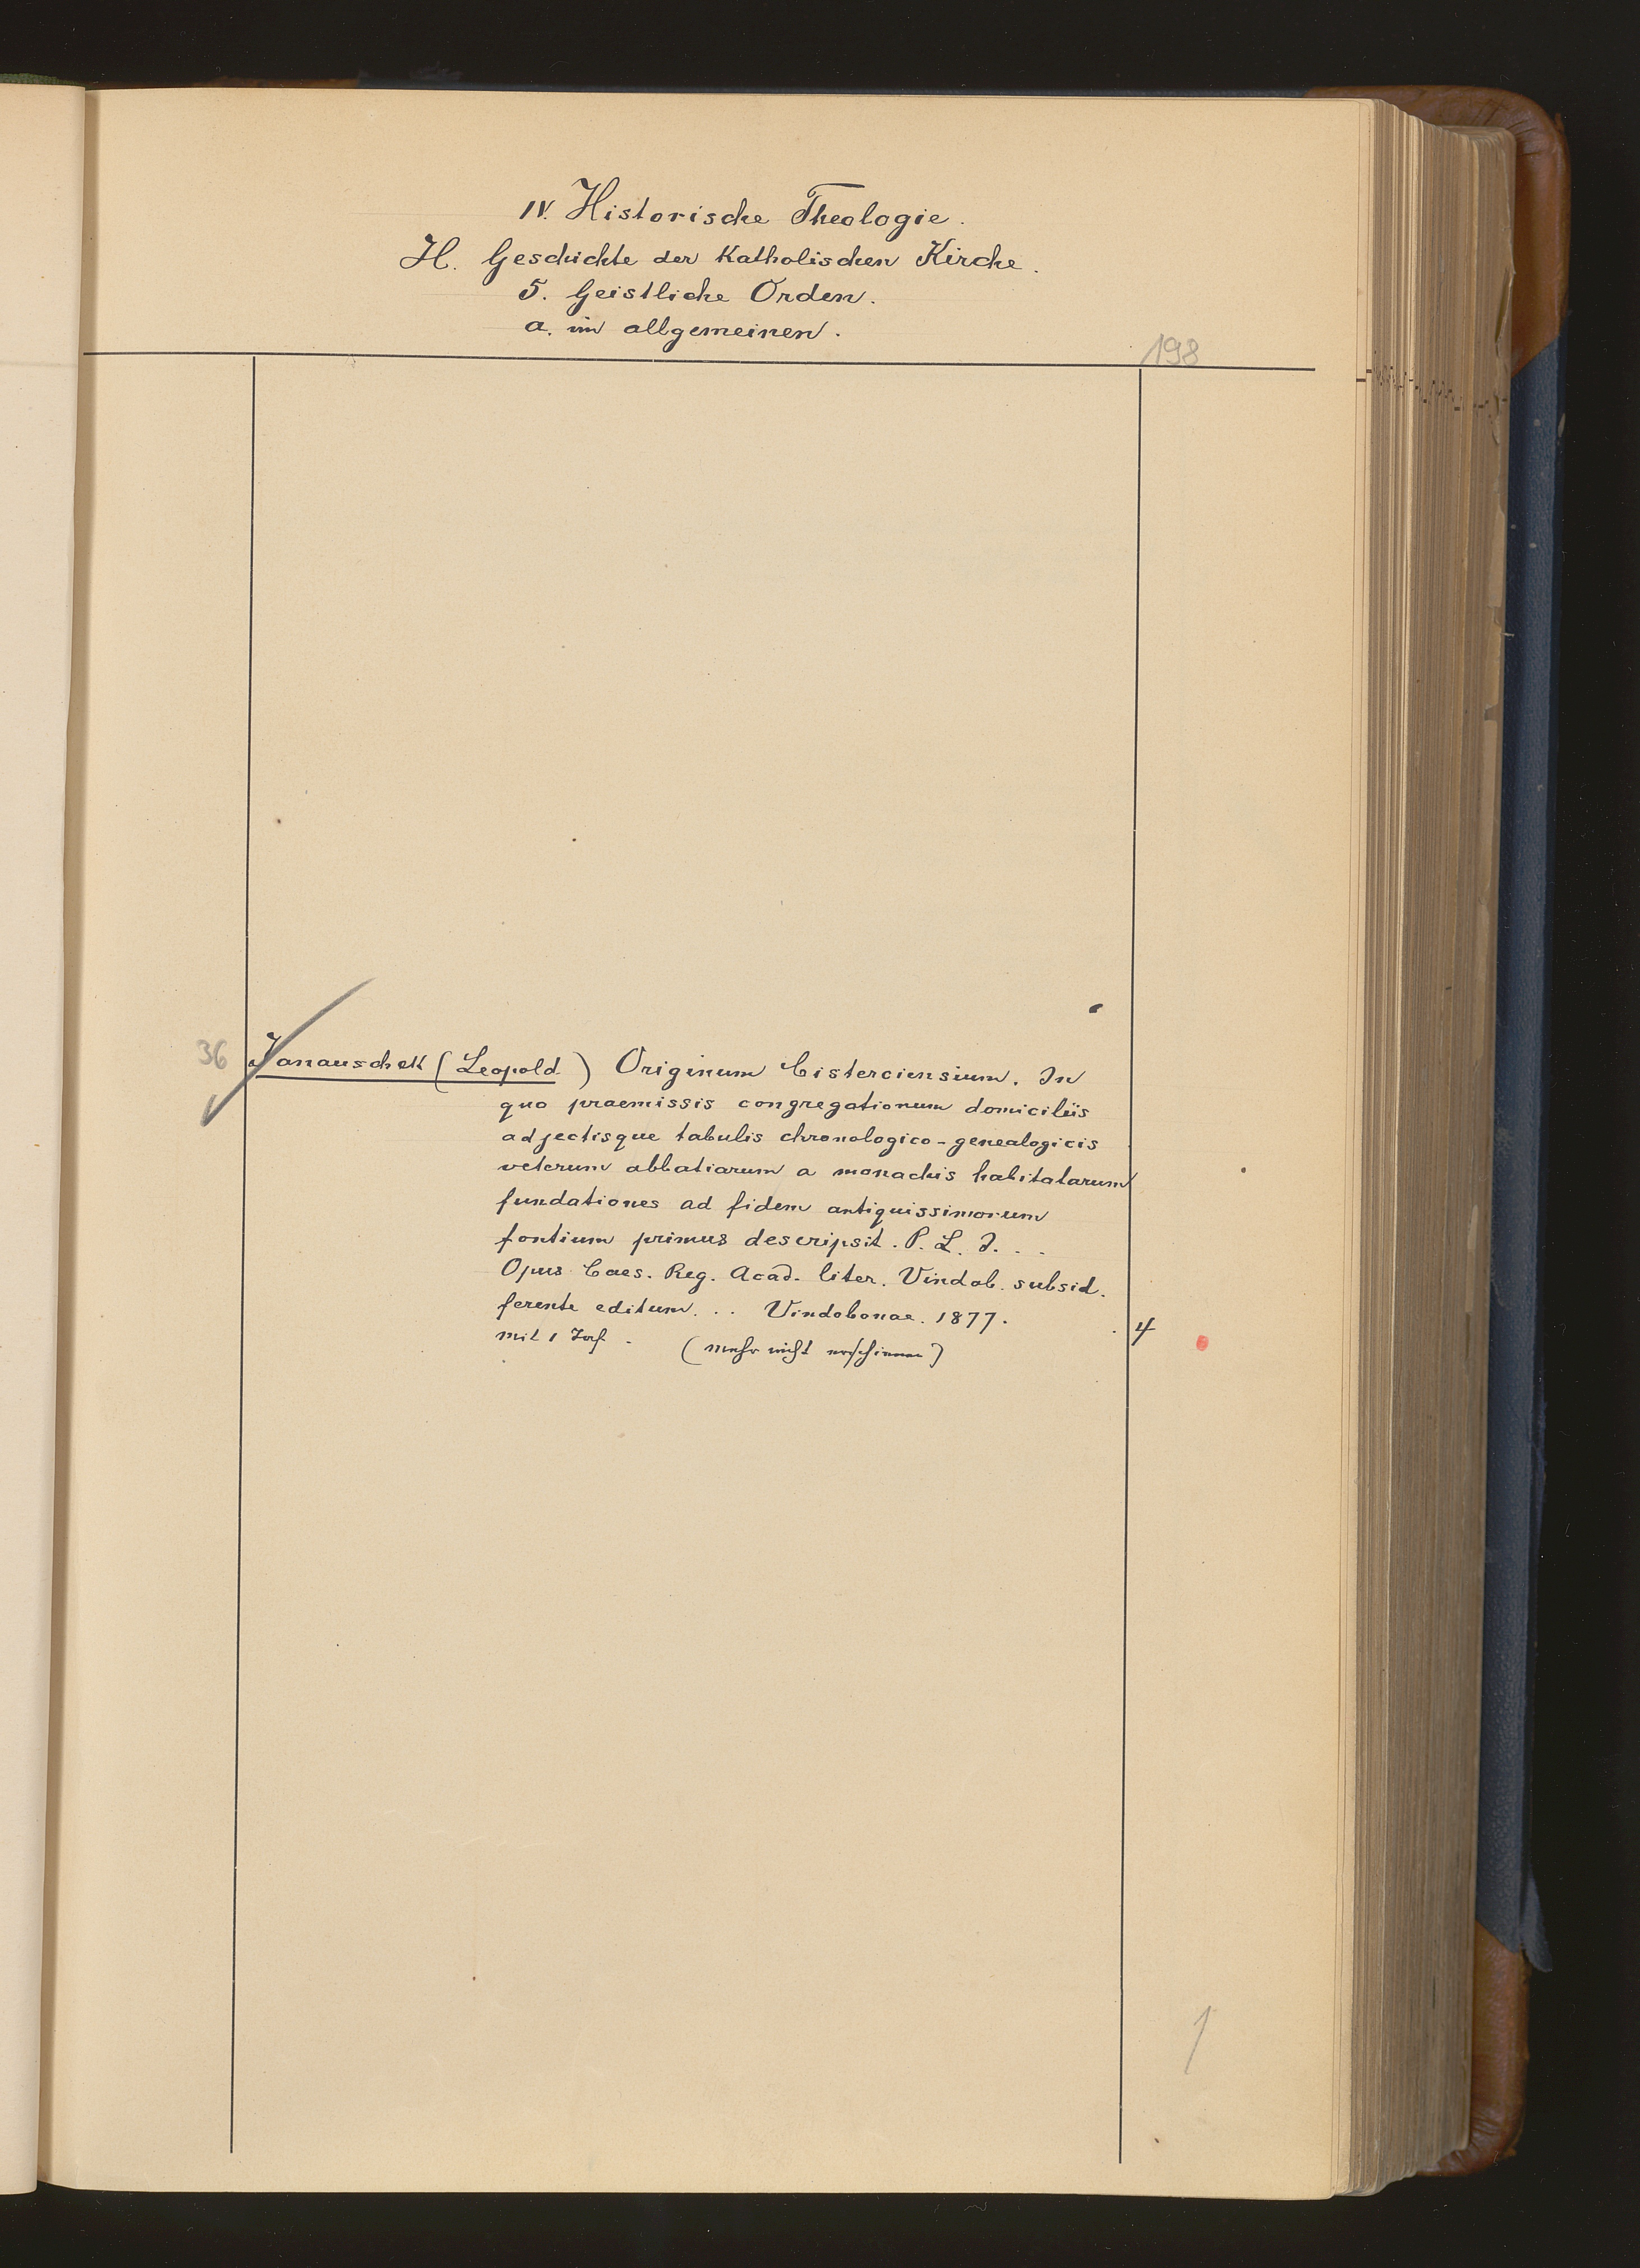 IV. Historische Theologie.
H. Geschichte der Katholischen Kirche.
5. Geistliche Orden.
a. im allgemeinen.
198
36 Janauschek (Leopold) Originum Cisterciensium. In
quo praemissis congregationum domiciliis
adjectisque tabulis chronologico-genealogicis
veterum abbatiarum a monachis habitatarum
fundationes ad fidem antiquissimorum
fontium primus descripsit. P. L. J. . .
Opus Caes. Reg. Acad. liter. Vindob. subsid.
ferente editum. .. Vindobonae. 1877. 4
mit 1 Taf. (mehr nicht erschienen)
1